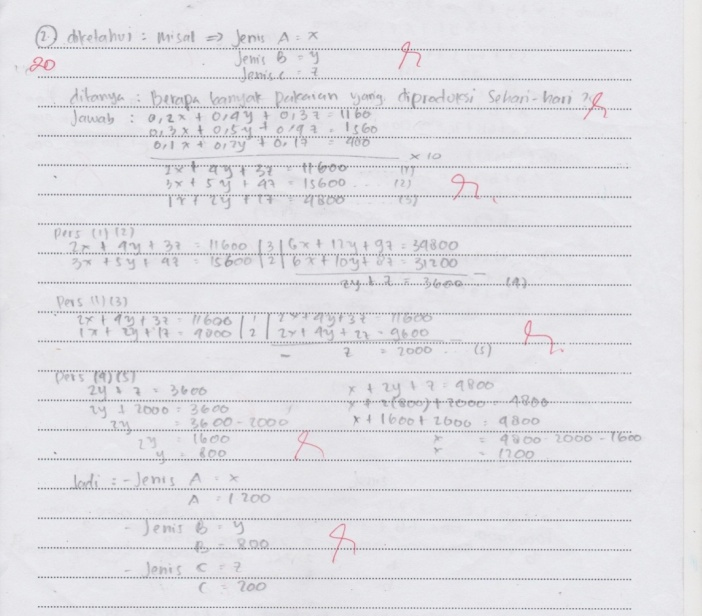 2. diketahui : Misal => Jenis A = x
20 Jenis B = y
Jenis C = z
ditanya : Berapa banyak pakaian yang diproduksi Sehari-hari ?
Jawab : 0,2x + 0,4y + 0,3z = 1160
0,3x + 0,5y + 0,4z = 1560
0,1x + 0,2y + 0,1z = 480
x 10
2x + 4y + 3z = 11600 (1)
3x + 5y + 4z = 15600 ... (2)
1x + 2y + 1z = 4800 (3)
Pers (1) (2)
2x + 4y + 3z = 11600 | 3 | 6x + 12y + 9z = 34800
3x + 5y + 4z = 15600 | 2 | 6x + 10y + 8z = 31200 -
2y + z = 3600 ... (4)
Pers (1) (3)
2x + 4y + 3z = 11600 | 1 | 2x + 4y + 3z = 11600
1x + 2y + 1z = 4800 | 2 | 2x + 4y + 2z = 9600 -
z = 2000 ... (5)
Pers (4) (5)
2y + z = 3600
2y + 2000 = 3600
2y = 3600 - 2000
2y = 1600
y = 800
x + 2y + z = 4800
x + 2(800) + 2000 = 4800
x + 1600 + 2000 = 4800
x = 4800 - 2000 - 1600
x = 1200
Jadi : - Jenis A = x
A = 1200
- Jenis B = y
B = 800
- Jenis C = z
C = 200